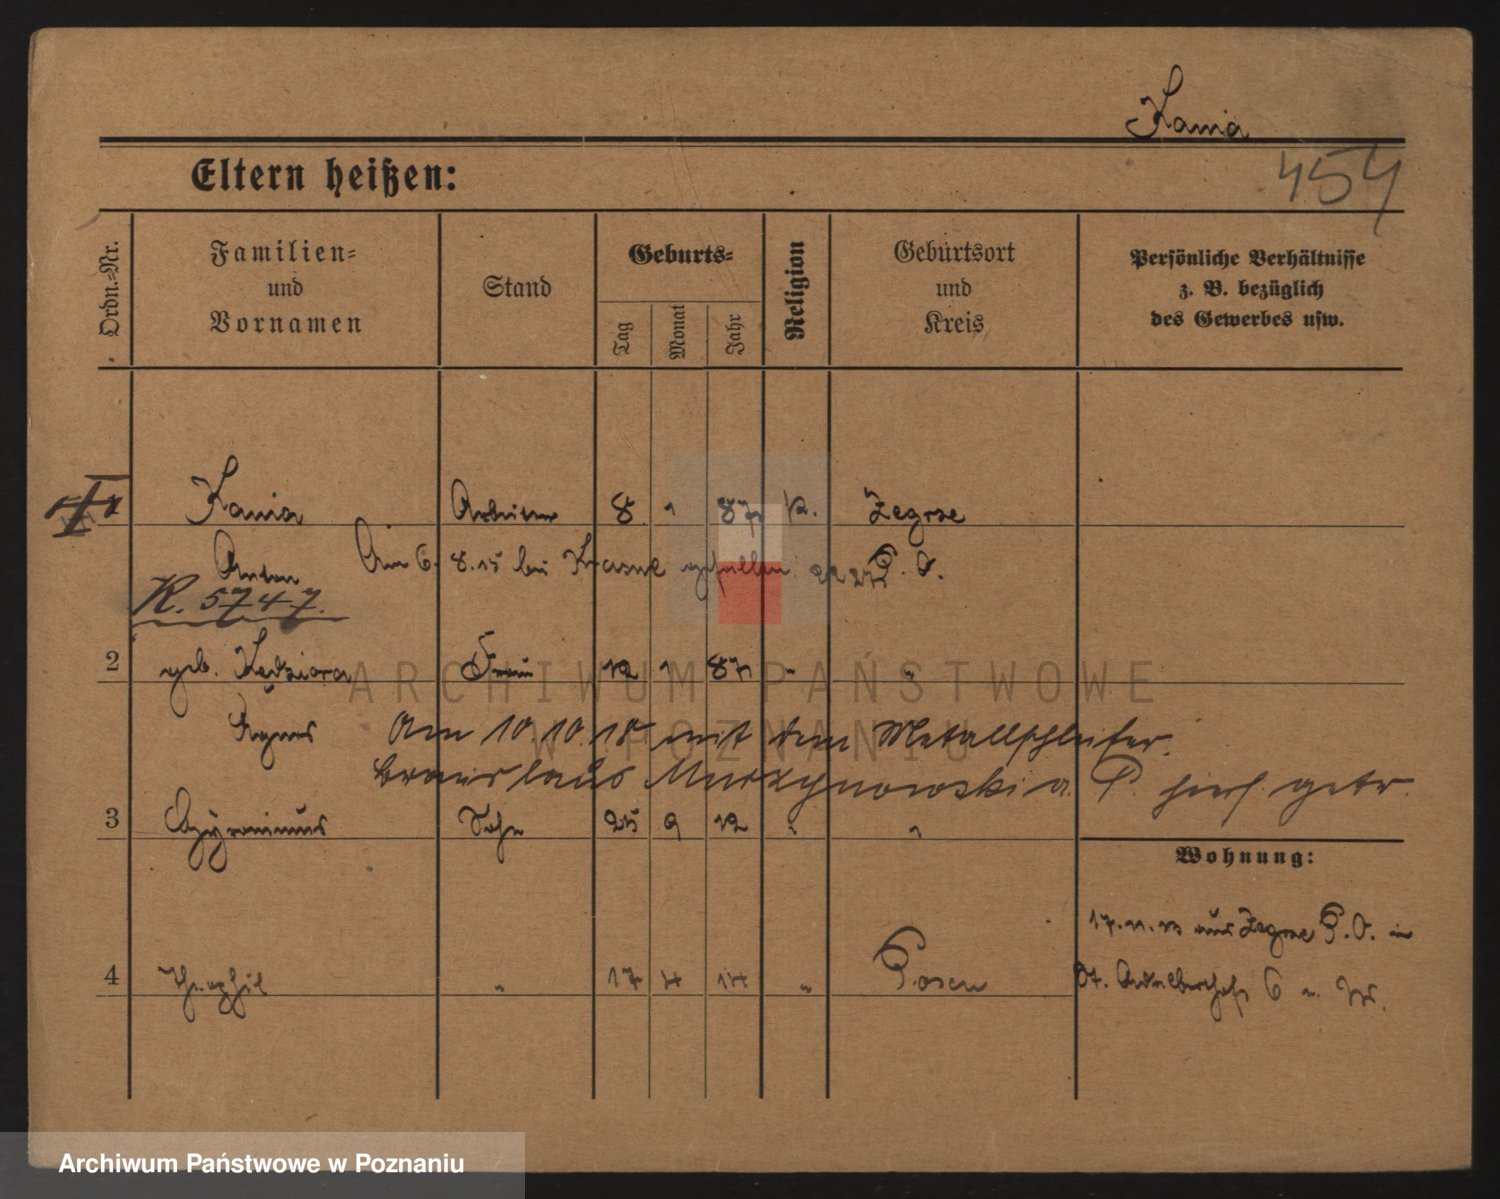 Kania
454
Eltern heißen:
Ordn.-Nr.
Familien- und Vornamen
Stand
Geburts-
Tag
Monat
Jahr
Religion
Geburtsort und Kreis
Persönliche Verhältnisse z. B. bezüglich des Gewerbes usw.
Kania Arbeiter 8 1 87 k. Zegrze
Anton Am 6. 8. 15 bei Krasne gefallen P. O.
K. 5747.
2 geb. Kędziora Frau 12 1 87 " "
Agnes Am 10.10.18 mit dem Metallschleifer
Bronislaus Murzynowski a. P. hier getr.
3 Hyronimus Sohn 25 9 12 " "
Wohnung:
17.11.13 aus Zegrze P. O. in
4 " 17 4 14 " Posen
St. Adalberthof 6
ARCHIWUM PAŃSTWOWE
W POZNANIU
Archiwum Państwowe w Poznaniu